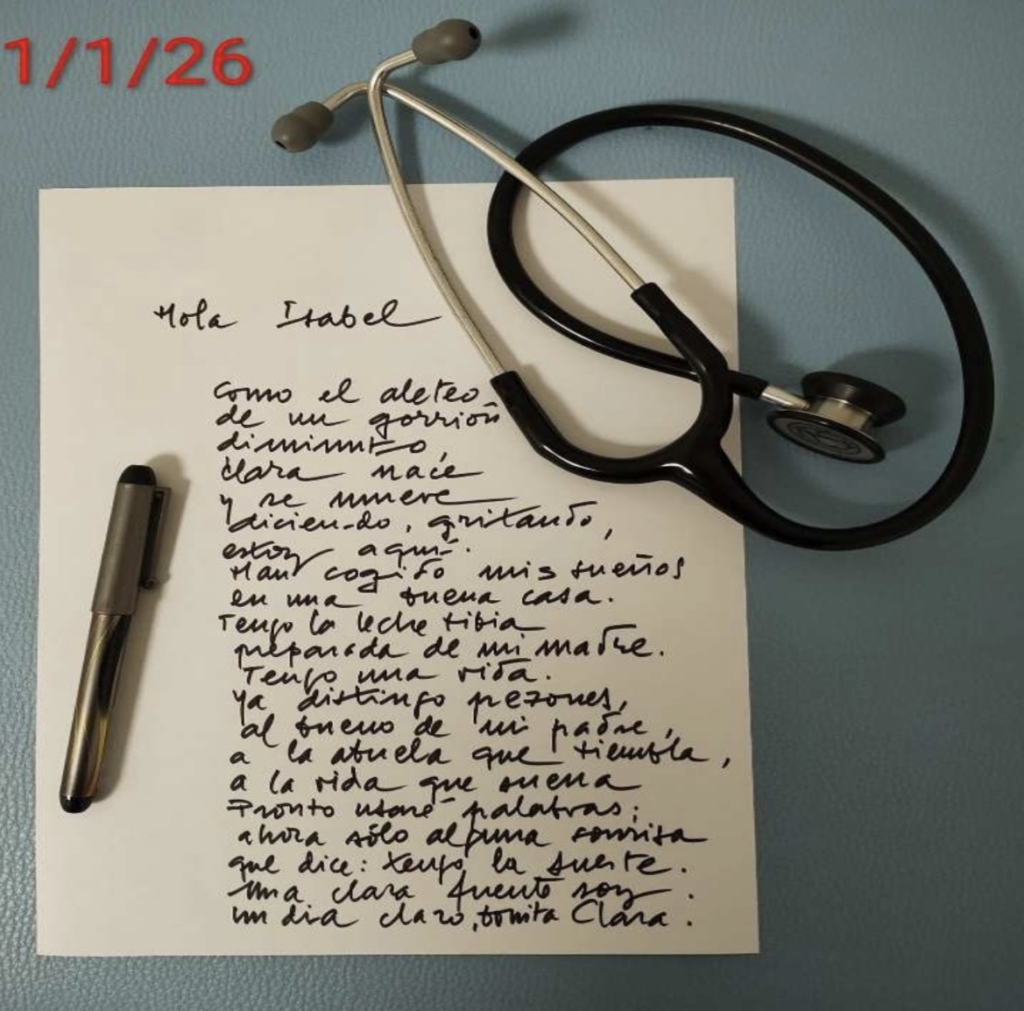 1/1/26
Hola Isabel
Como el aleteo
de un gorrión
diminuto,
Clara nace
y se mueve
diciendo, gritando,
estoy aquí.
Han cogido mis sueños
en una buena casa.
Tengo la leche tibia
preparada de mi madre.
Tengo una vida.
Ya distingo pezones,
al bueno de mi padre,
a la abuela que tiembla,
a la vida que suena
Pronto usaré palabras;
ahora sólo alguna sonrisa
que dice: tengo la suerte.
Una clara fuente soy
un día claro, bonita Clara.